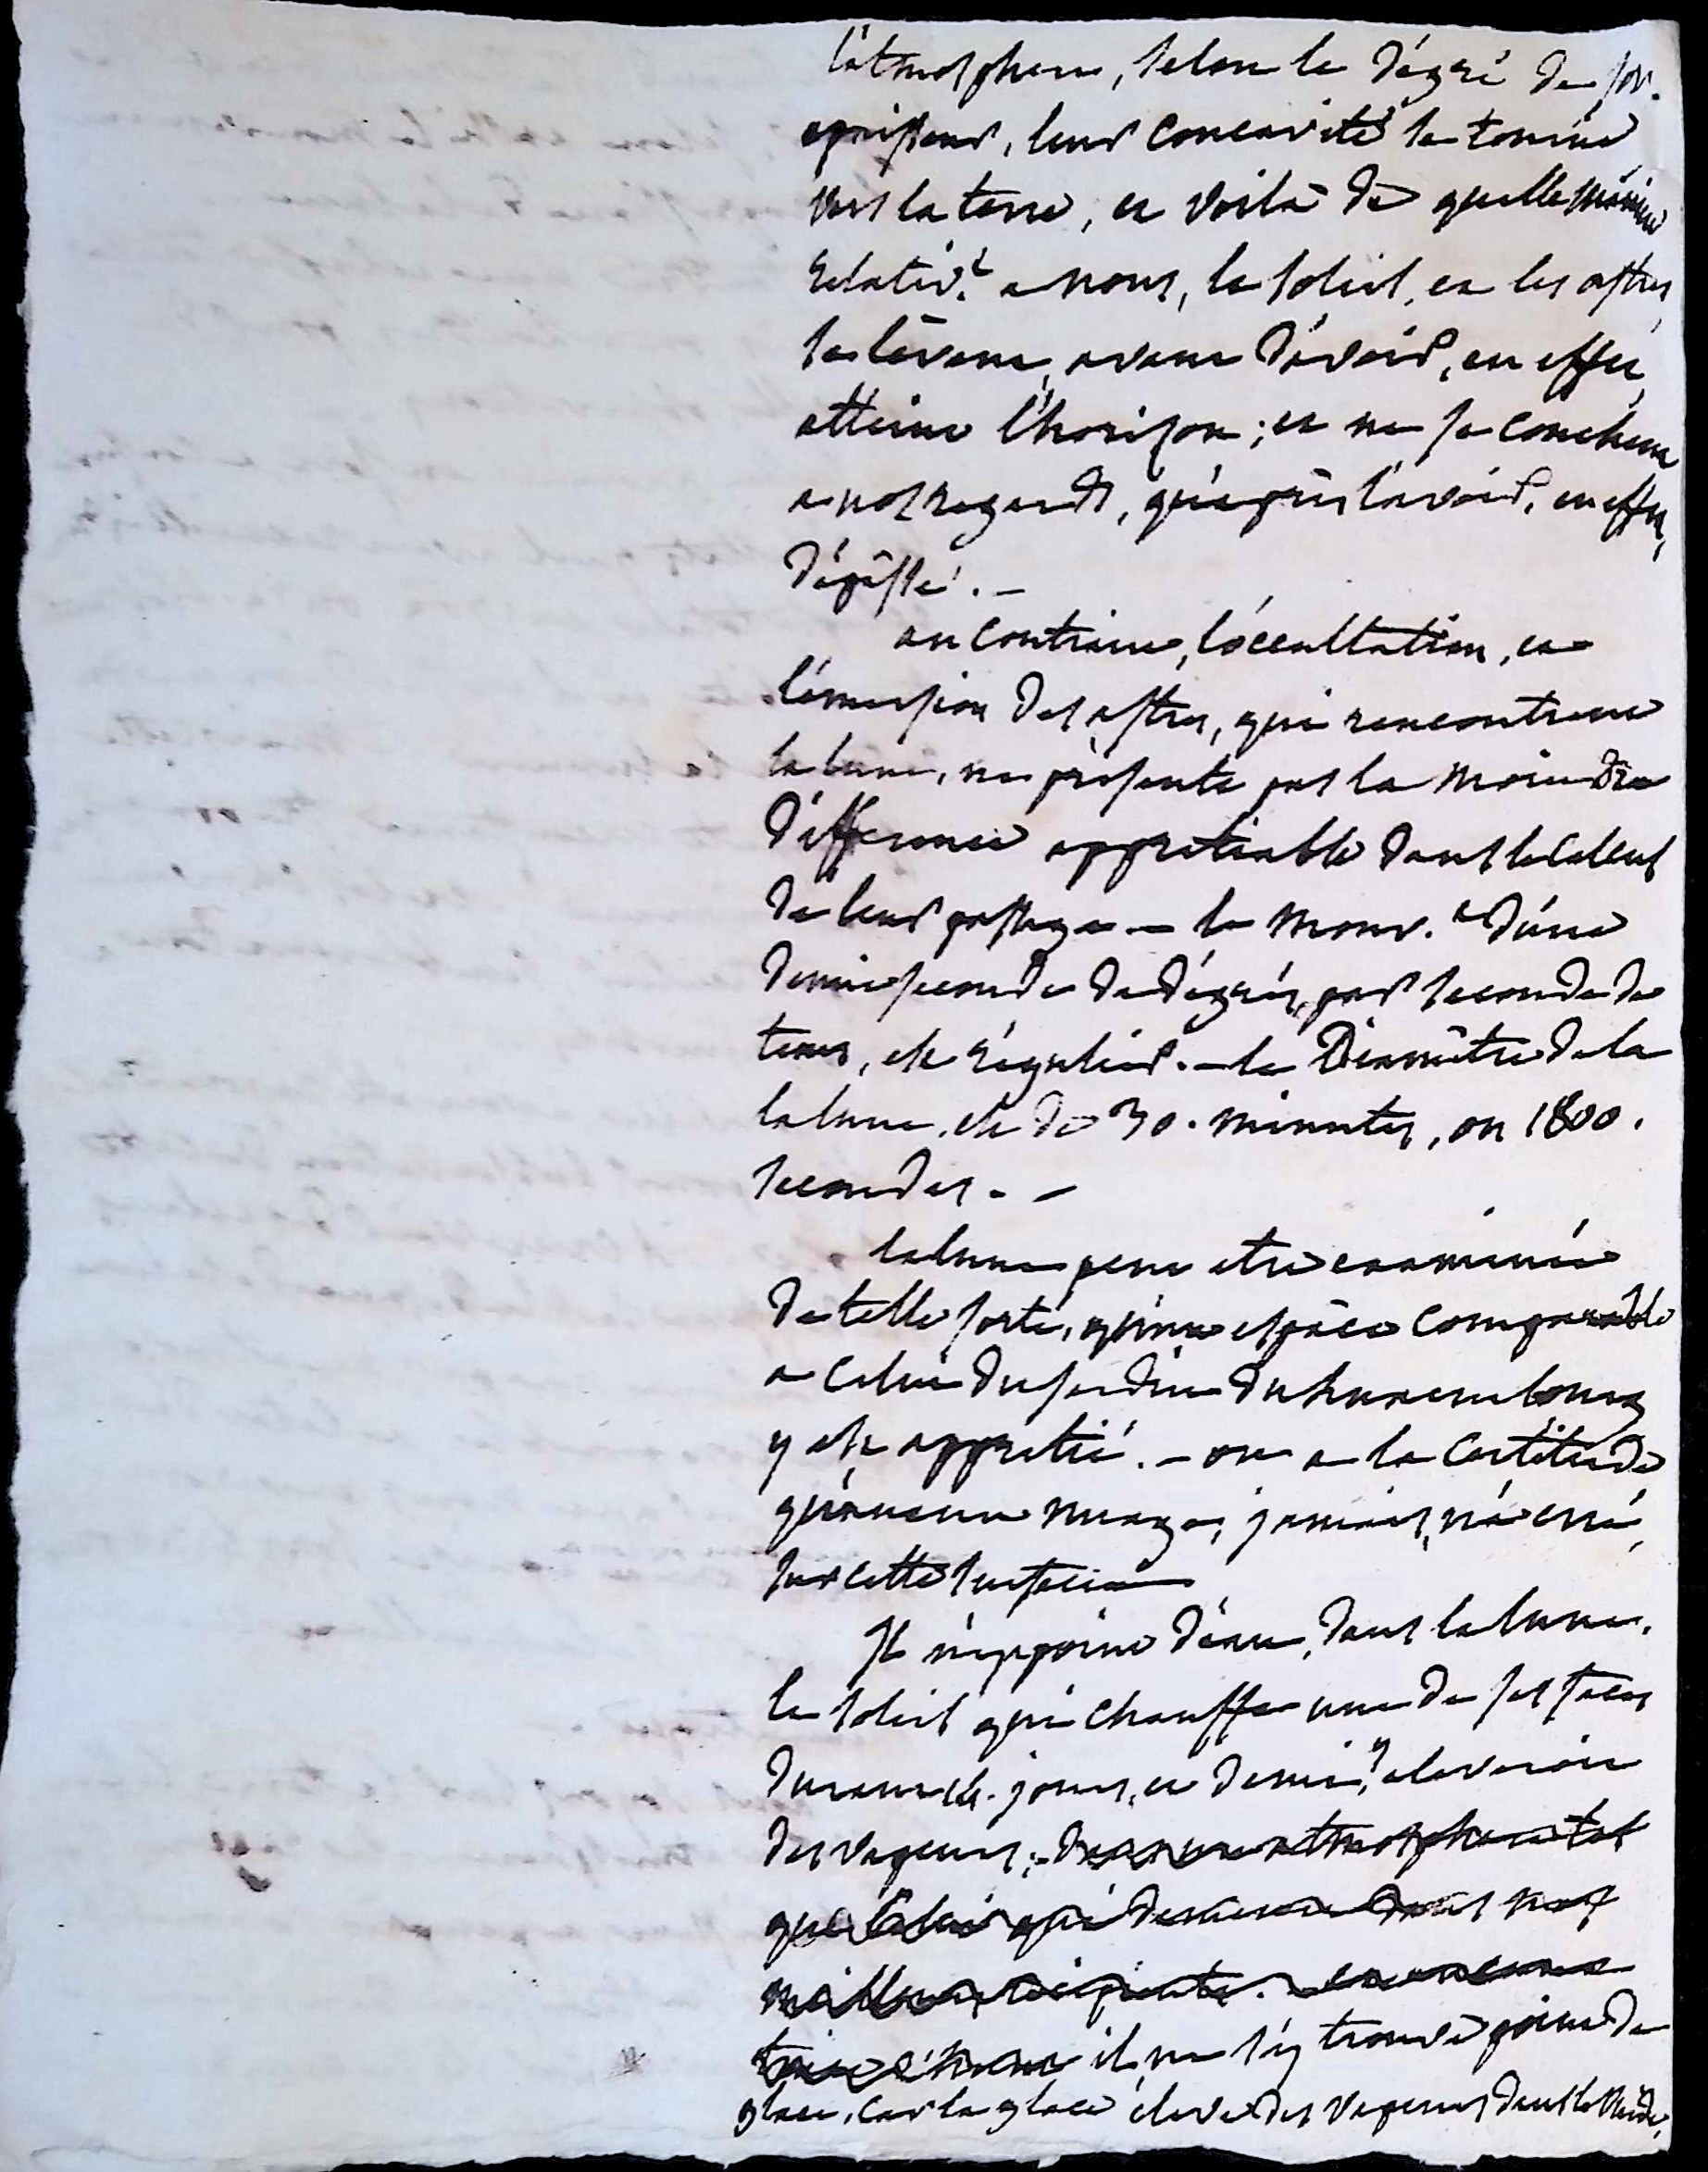 l'atmosphere, selon le dégré de son
épaisseur, leur concavité se tourne
vers la terre, et voila de quelle maniere
relativ.t a nous, le soleil, et les astres,
se lèvent, avant d'avoir, en effet,
atteint l'horison ; et ne se couchent
a nos regards, qu'après l'avoir, en effet,
dépâssé. –
au contraire, l'occultation, et
l'émersion des astres, que rencontrent
la lune, ne présente pas la moindre
différence appretiable dans le calcul
de leur passage – le mouv.t d'une
demie seconde de dégrés, par seconde de
tems, est régulier. – le Diamêtre de la
la lune, est de 30. minutes, ou 1800.
secondes. –
la lune peut etre examinée
de telle sorte, qu'un espâce comparable
a celui du jardin du Luxembourg
y est appretié. – on a la certitude
qu'aucun nuage, jamais, n'a erré,
sur cette surface
Il n'y a point d'eau, dans la lune.
le soleil qui chauffe une de ses faces
durant 14. jours, et demie, y eleveroit
des vapeurs ; dans une atmosphere tel
que celui qui demeure dans nos
récipients. et aucune
il ne s'y trouve point de
glace, car la glace éleve des vapeurs dans le vuide,